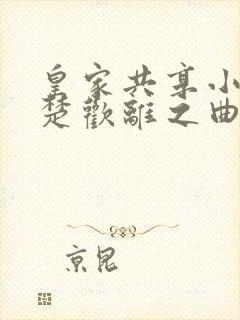 皇家共享小
楚歡離之曲
京昆